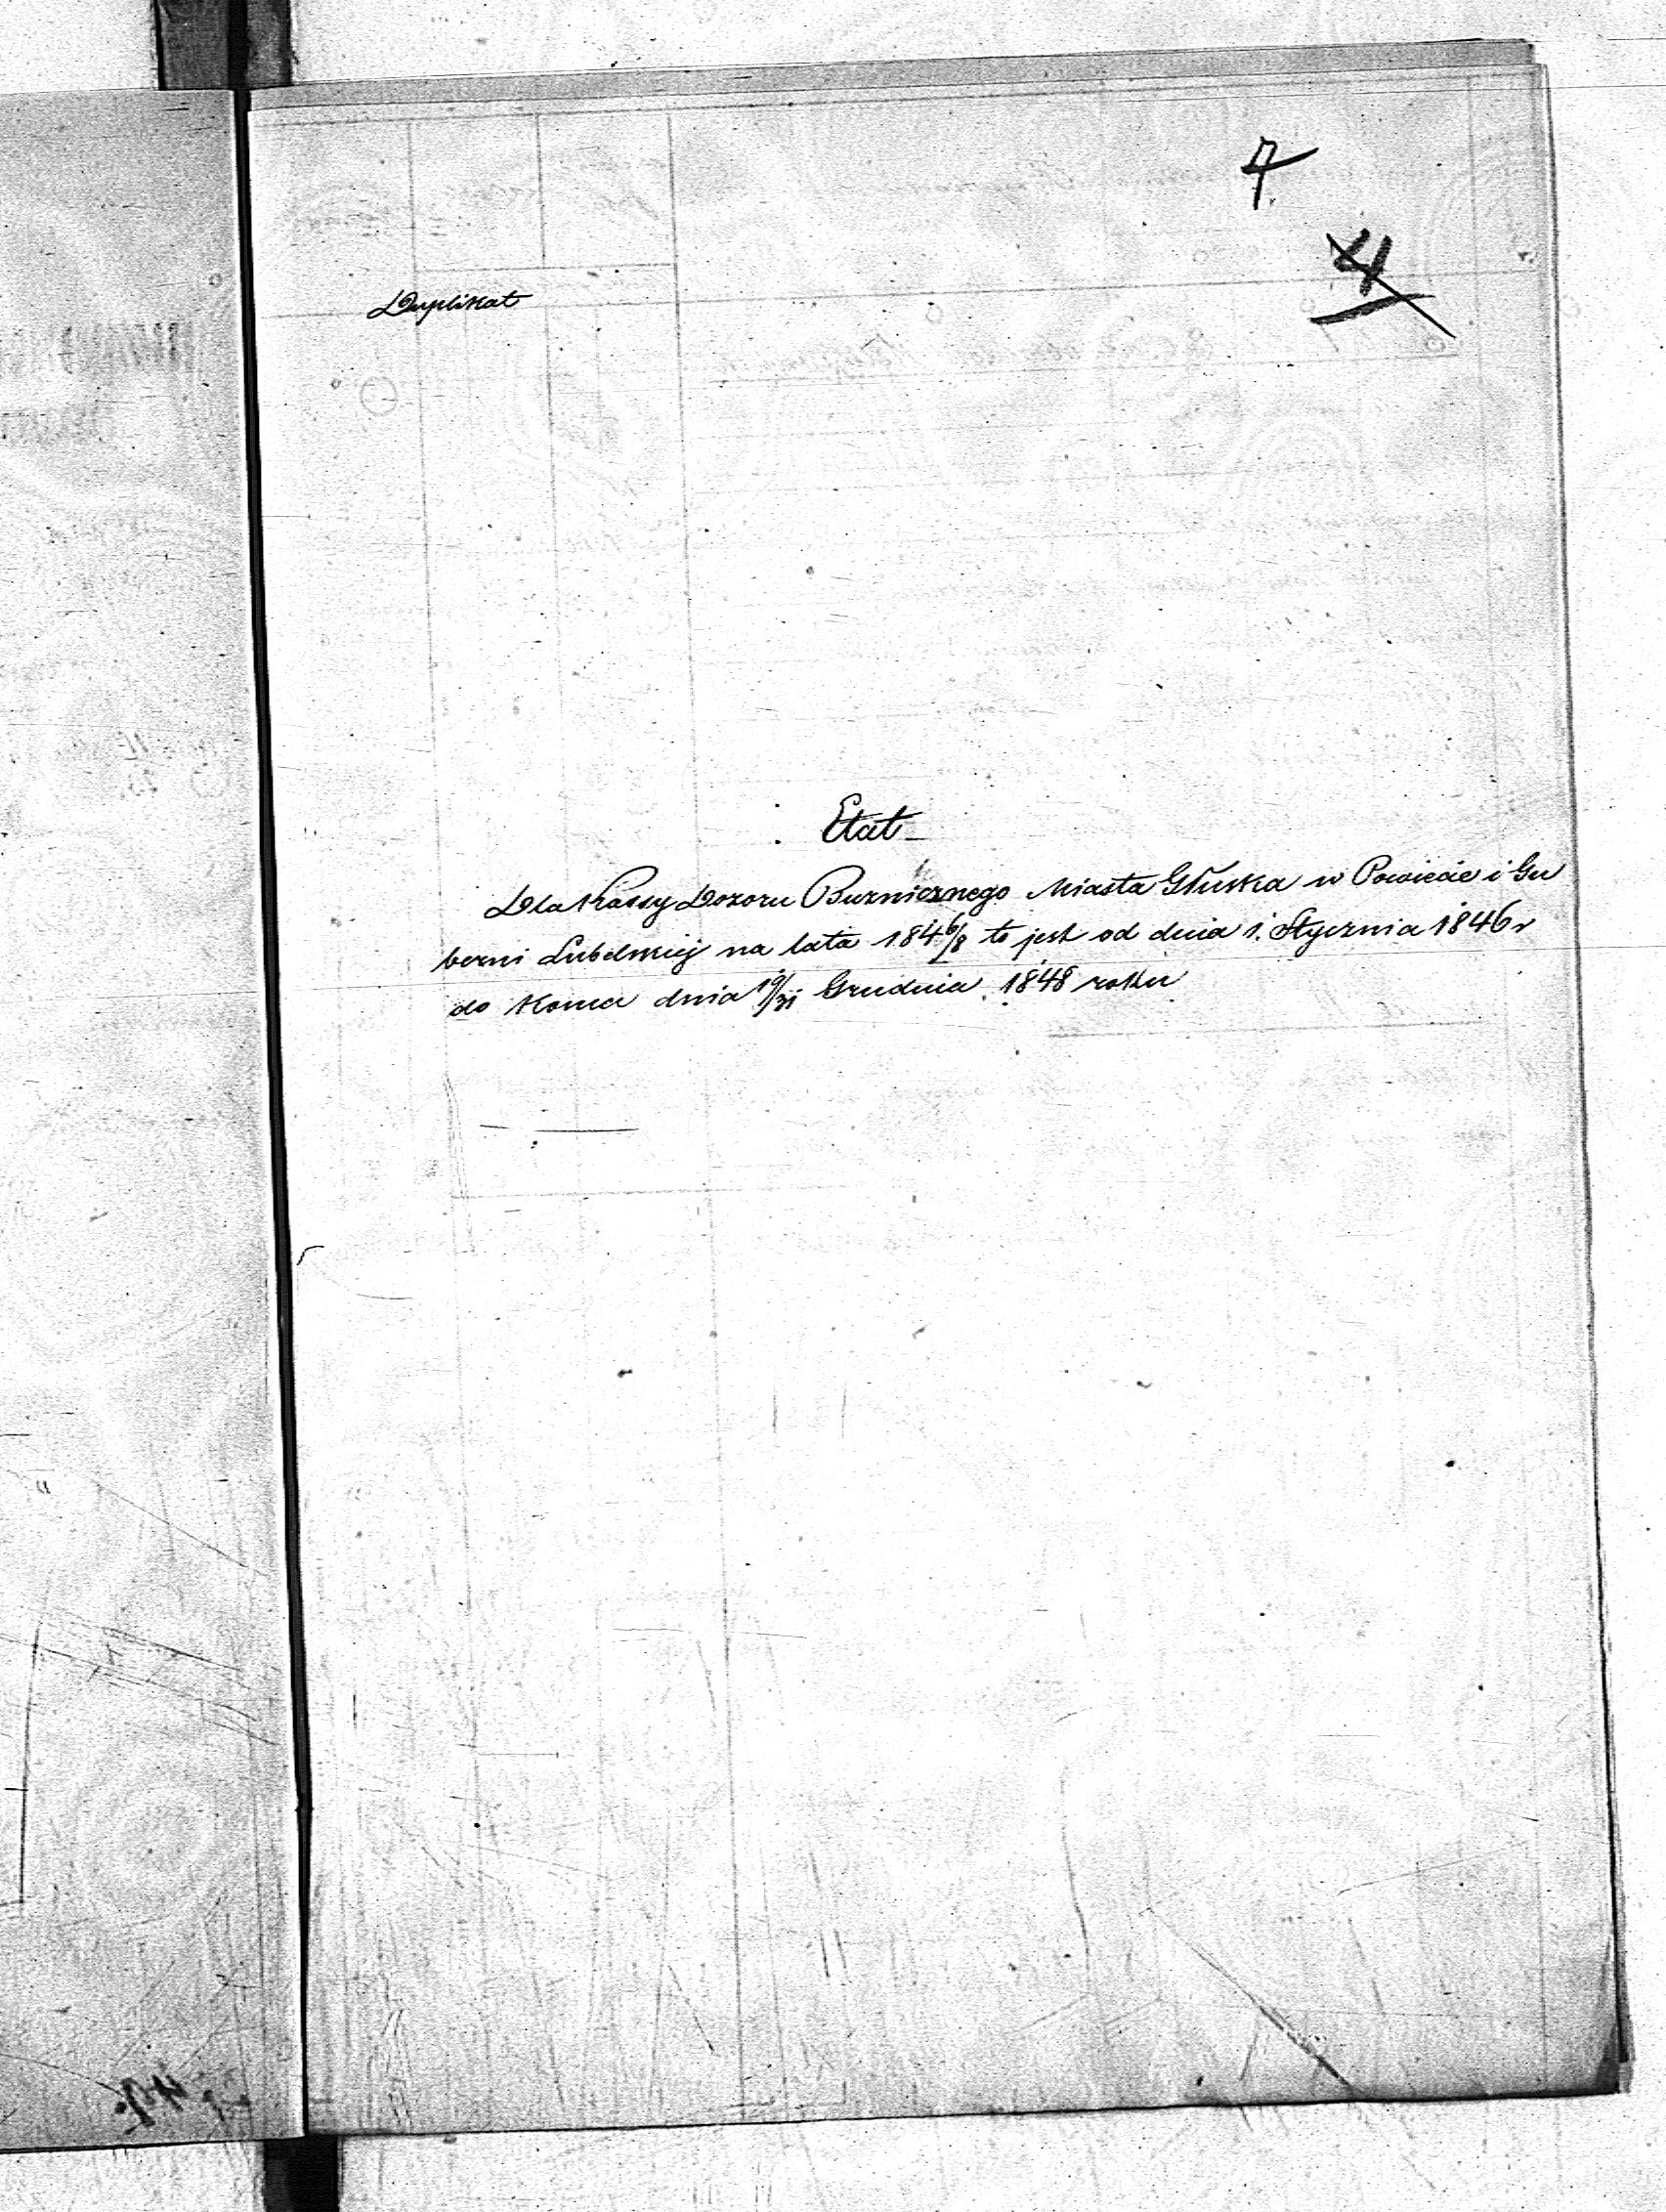 7
4
Duplikat
Etat
Dla Kassy Dozoru Buznicznego Miasta Głuska w Powiecie i Gu
berni Lubelskiej na lata 1846/8 to jest od dnia 1. Stycznia 1846 r
do konca dnia 19/31 Grudnia 1848 roku